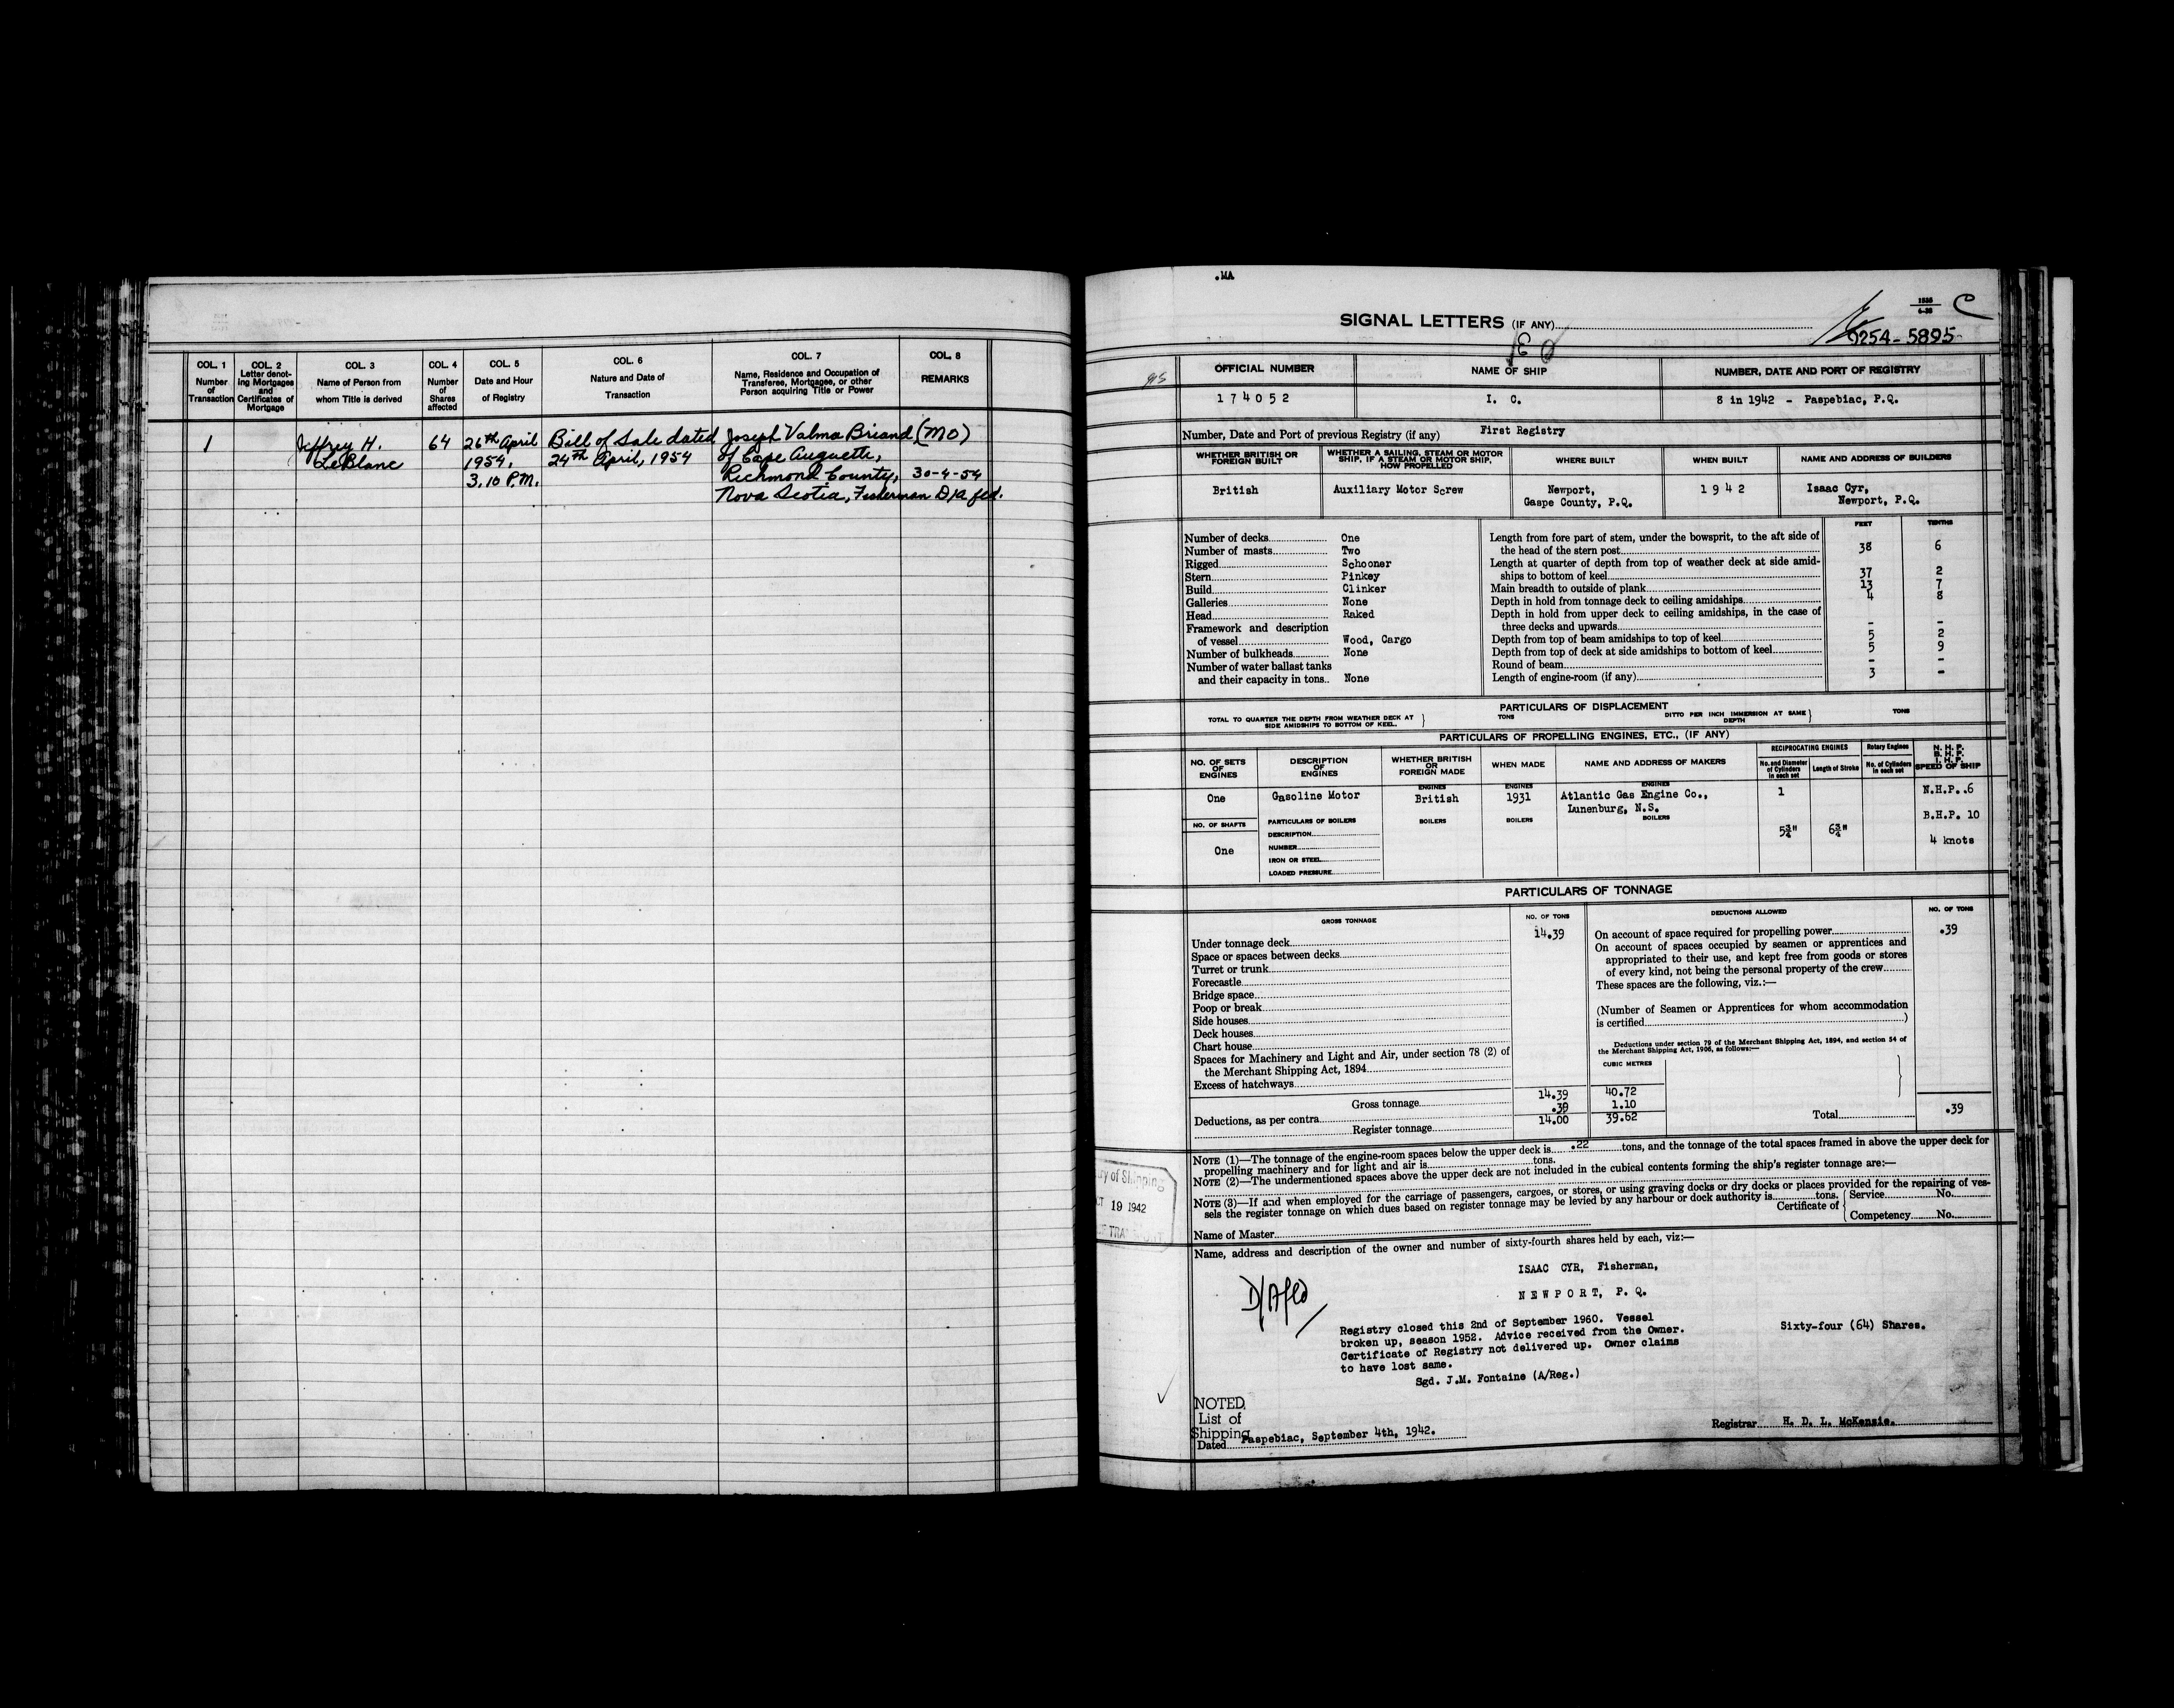 COL. 1
Number
of
Transaction
COL. 2
Letter denot-
ing Mortgages
and
Certificates of
Mortgage
COL. 3
Name of Person from
whom Title is derived
COL. 4
Number
of
Shares
affected
COL. 5
Date and Hour
of Registry
COL. 6
Nature and Date of
Transaction
COL. 7
Name, Residence and Occupation of
Transferee, Mortgagee, or other
Person acquiring Title or Power
COL. 8
REMARKS
1
Jeffrey H.
LeBlanc
64
26th April
1954.
3.10 P.M.
Bill of Sale dated
24th April, 1954
Joseph Valmo Briand (MO)
of Cape Auguette,
Richmond County, 30-4-54
Nova Scotia, Fisherman D/A fld.
.MA
SIGNAL LETTERS (IF ANY)
1535
C
5895
OFFICIAL NUMBER
NAME OF SHIP
NUMBER, DATE AND PORT OF REGISTRY
174052
I. C.
8 in 1942 - Paspebiac, P.Q.
Number, Date and Port of previous Registry (if any) First Registry
WHETHER BRITISH OR
FOREIGN BUILT
WHETHER A SAILING, STEAM OR MOTOR
SHIP, IF A STEAM OR MOTOR SHIP,
HOW PROPELLED
WHERE BUILT
WHEN BUILT
NAME AND ADDRESS OF BUILDERS
British
Auxiliary Motor Screw
Newport,
Gaspe County, P.Q.
1942
Isaac Cyr,
Newport, P.Q.
FEET TENTHS
Number of decks One
Number of masts Two
Rigged Schooner
Stern Pinkey
Build Clinker
Galleries None
Head Raked
Framework and description
of vessel Wood, Cargo
Number of bulkheads None
Number of water ballast tanks
and their capacity in tons.. None
Length from fore part of stem, under the bowsprit, to the aft side of
the head of the stern post 38 6
Length at quarter of depth from top of weather deck at side amid-
ships to bottom of keel 37 2
Main breadth to outside of plank 13 7
Depth in hold from tonnage deck to ceiling amidships 4 8
Depth in hold from upper deck to ceiling amidships, in the case of
three decks and upwards - -
Depth from top of beam amidships to top of keel 5 2
Depth from top of deck at side amidships to bottom of keel 5 9
Round of beam - -
Length of engine-room (if any) 3 -
PARTICULARS OF DISPLACEMENT
TOTAL TO QUARTER THE DEPTH FROM WEATHER DECK AT
SIDE AMIDSHIPS TO BOTTOM OF KEEL.
TONS
DITTO PER INCH IMMERSION AT SAME
DEPTH
TONS
PARTICULARS OF PROPELLING ENGINES, ETC., (IF ANY)
NO. OF SETS
OF
ENGINES
DESCRIPTION
OF
ENGINES
WHETHER BRITISH
OR
FOREIGN MADE
WHEN MADE
NAME AND ADDRESS OF MAKERS
RECIPROCATING ENGINES
No. and Diameter
of Cylinders
in each set
Length of Stroke
Rotary Engines
No. of Cylinders
in each set
N. H. P.
B. H. P.
I. H. P.
SPEED OF SHIP
One
Gasoline Motor
ENGINES
British
ENGINES
1931
ENGINES
Atlantic Gas Engine Co.,
Lunenburg, N.S.
1
N.H.P. .6
B.H.P. 10
4 knots
5¾" 6¾"
NO. OF SHAFTS
One
PARTICULARS OF BOILERS
DESCRIPTION
NUMBER
IRON OR STEEL
LOADED PRESSURE
BOILERS
BOILERS
BOILERS
PARTICULARS OF TONNAGE
GROSS TONNAGE
NO. OF TONS
DEDUCTIONS ALLOWED
NO. OF TONS
Under tonnage deck 14.39
Space or spaces between decks
Turret or trunk
Forecastle
Bridge space
Poop or break
Side houses
Deck houses
Chart house
Spaces for Machinery and Light and Air, under section 78 (2) of
the Merchant Shipping Act, 1894
Excess of hatchways
Gross tonnage 14.39 40.72
Deductions, as per contra .39 1.10
Register tonnage 14.00 39.62
On account of space required for propelling power .39
On account of spaces occupied by seamen or apprentices and
appropriated to their use, and kept free from goods or stores
of every kind, not being the personal property of the crew
These spaces are the following, viz.:—
(Number of Seamen or Apprentices for whom accommodation
is certified )
Deductions under section 79 of the Merchant Shipping Act, 1894, and section 54 of
the Merchant Shipping Act, 1906, as follows:—
CUBIC METRES
Total .39
NOTE (1)—The tonnage of the engine-room spaces below the upper deck is .22 tons, and the tonnage of the total spaces framed in above the upper deck for
propelling machinery and for light and air is tons.
NOTE (2)—The undermentioned spaces above the upper deck are not included in the cubical contents forming the ship's register tonnage are:—
NOTE (3)—If and when employed for the carriage of passengers, cargoes, or stores, or using graving docks or dry docks or places provided for the repairing of ves-
sels the register tonnage on which dues based on register tonnage may be levied by any harbour or dock authority is tons.
Certificate of
Service No.
Competency No.
ry of Shipping
CT 19 1942
Name of Master
Name, address and description of the owner and number of sixty-fourth shares held by each, viz:—
ISAAC CYR, Fisherman,
NEWPORT, P. Q.
D/A fld
Sixty-four (64) Shares.
Registry closed this 2nd of September 1960. Vessel
broken up, season 1952. Advice received from the Owner.
Certificate of Registry not delivered up. Owner claims
to have lost same.
Sgd. J.M. Fontaine (A/Reg.)
NOTED
List of
Shipping
Dated Paspebiac, September 4th, 1942.
Registrar H. D. L. McKenzie.